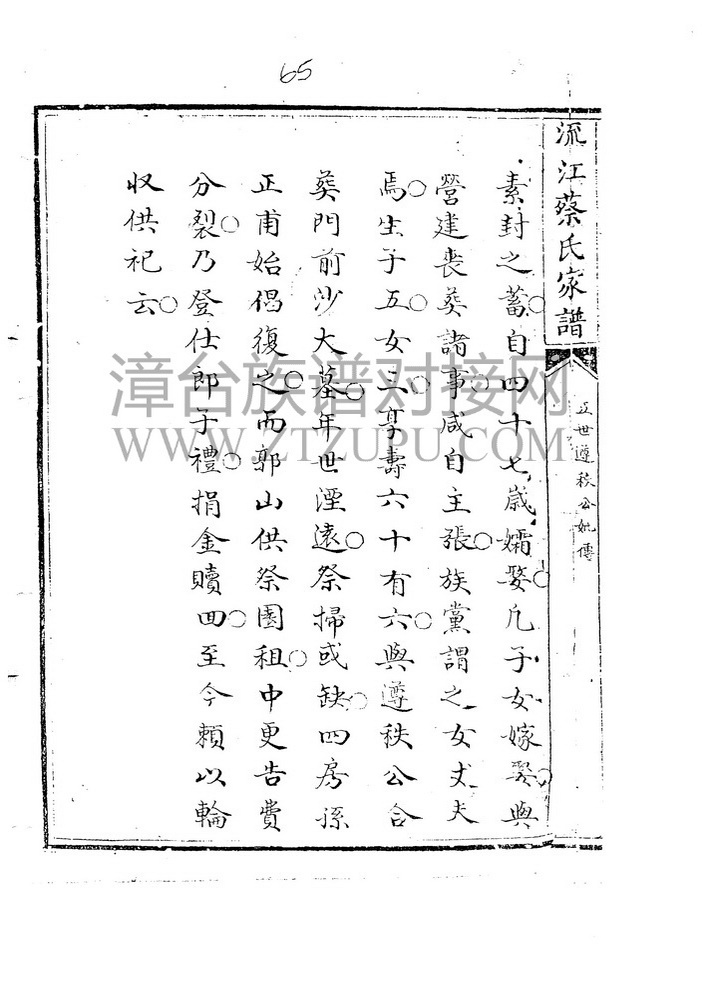 65
流江蔡氏家譜
五世遵秩公妣傳
素封之蓄○自四十七歲孀娶○凡子女嫁娶○與
營建喪葬諸事○咸自主張○族黨謂之女丈夫
焉○生子五女三○享壽六十有六○與遵秩公合
葬門前沙大墓○年世湮遠○祭掃或缺○四房孫
正甫始倡復之○而郭山供祭園租○中更告費
分裂○乃登仕郎子禮○捐金贖回○至今賴以輪
收供祀云○
漳台族谱对接网
WWW.ZTZUPU.COM